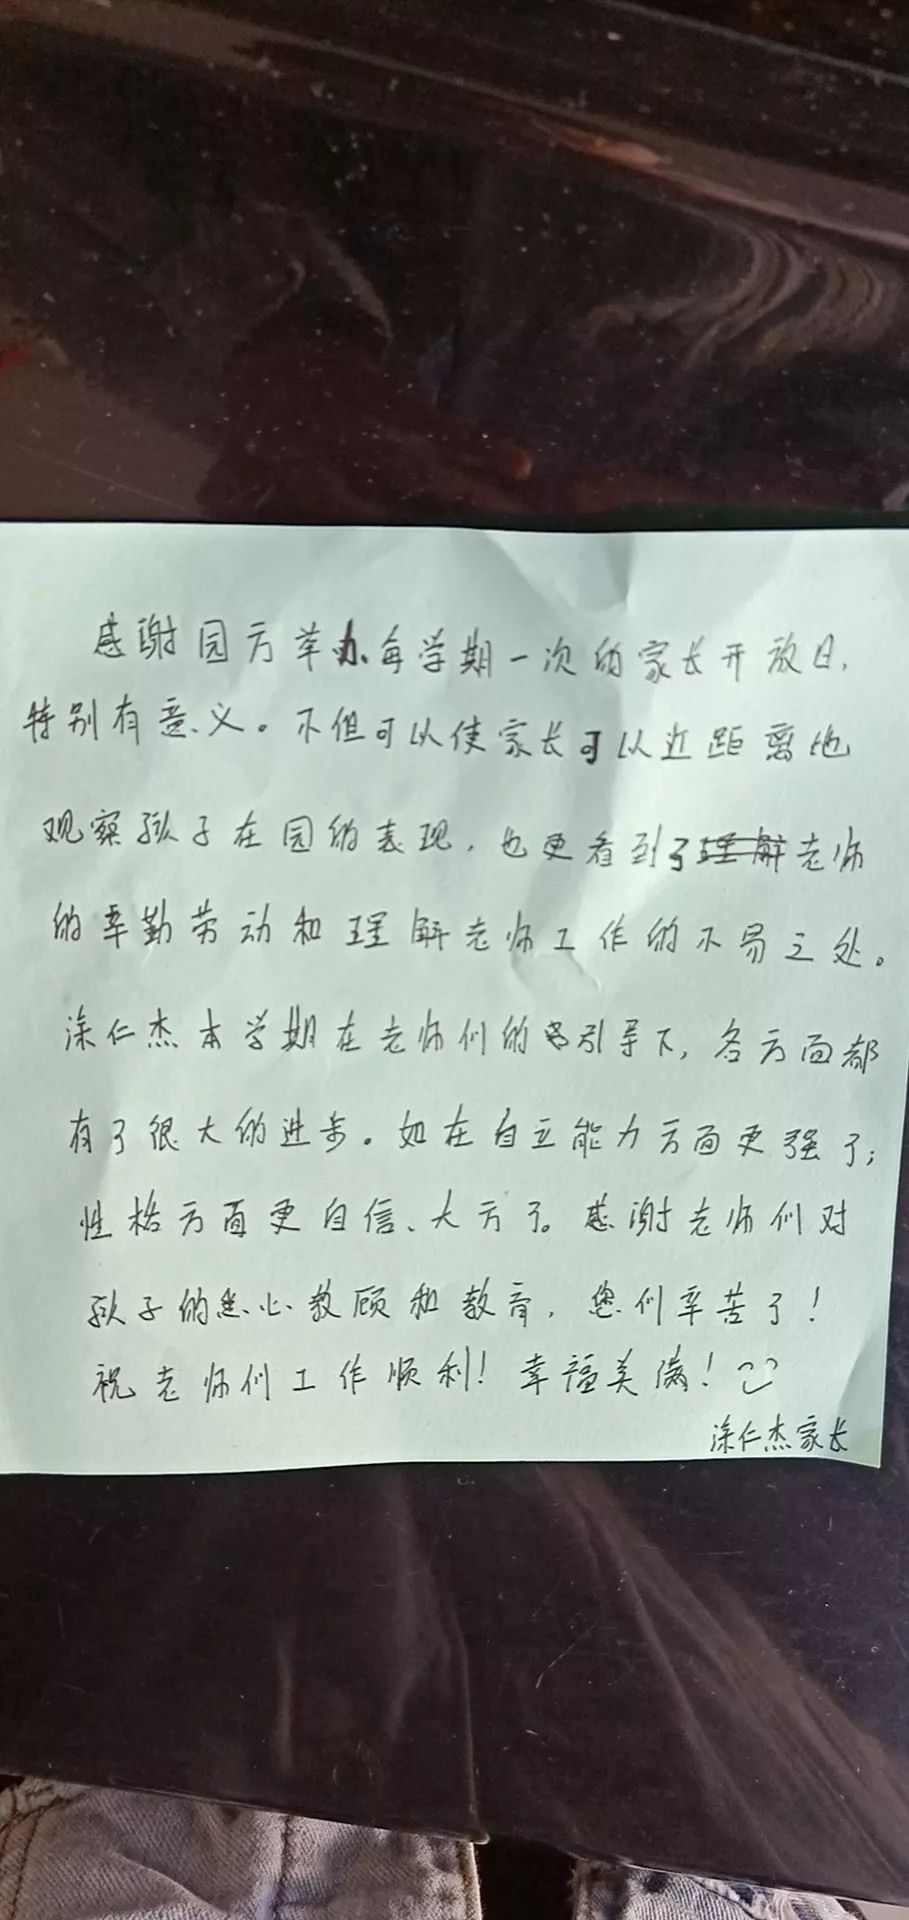 感谢园方举办每学期一次的家长开放日，
特别有意义。不但可以使家长可以近距离地
观察孩子在园的表现，也更看到了理解老师
的辛勤劳动和理解老师工作的不易之处。
涂仁杰本学期在老师们的引导下，各方面都
有了很大的进步。如在自立能力方面更强了；
性格方面更自信、大方了。感谢老师们对
孩子的悉心教顾和教育，您们辛苦了！
祝老师们工作顺利！幸福美满！
涂仁杰家长